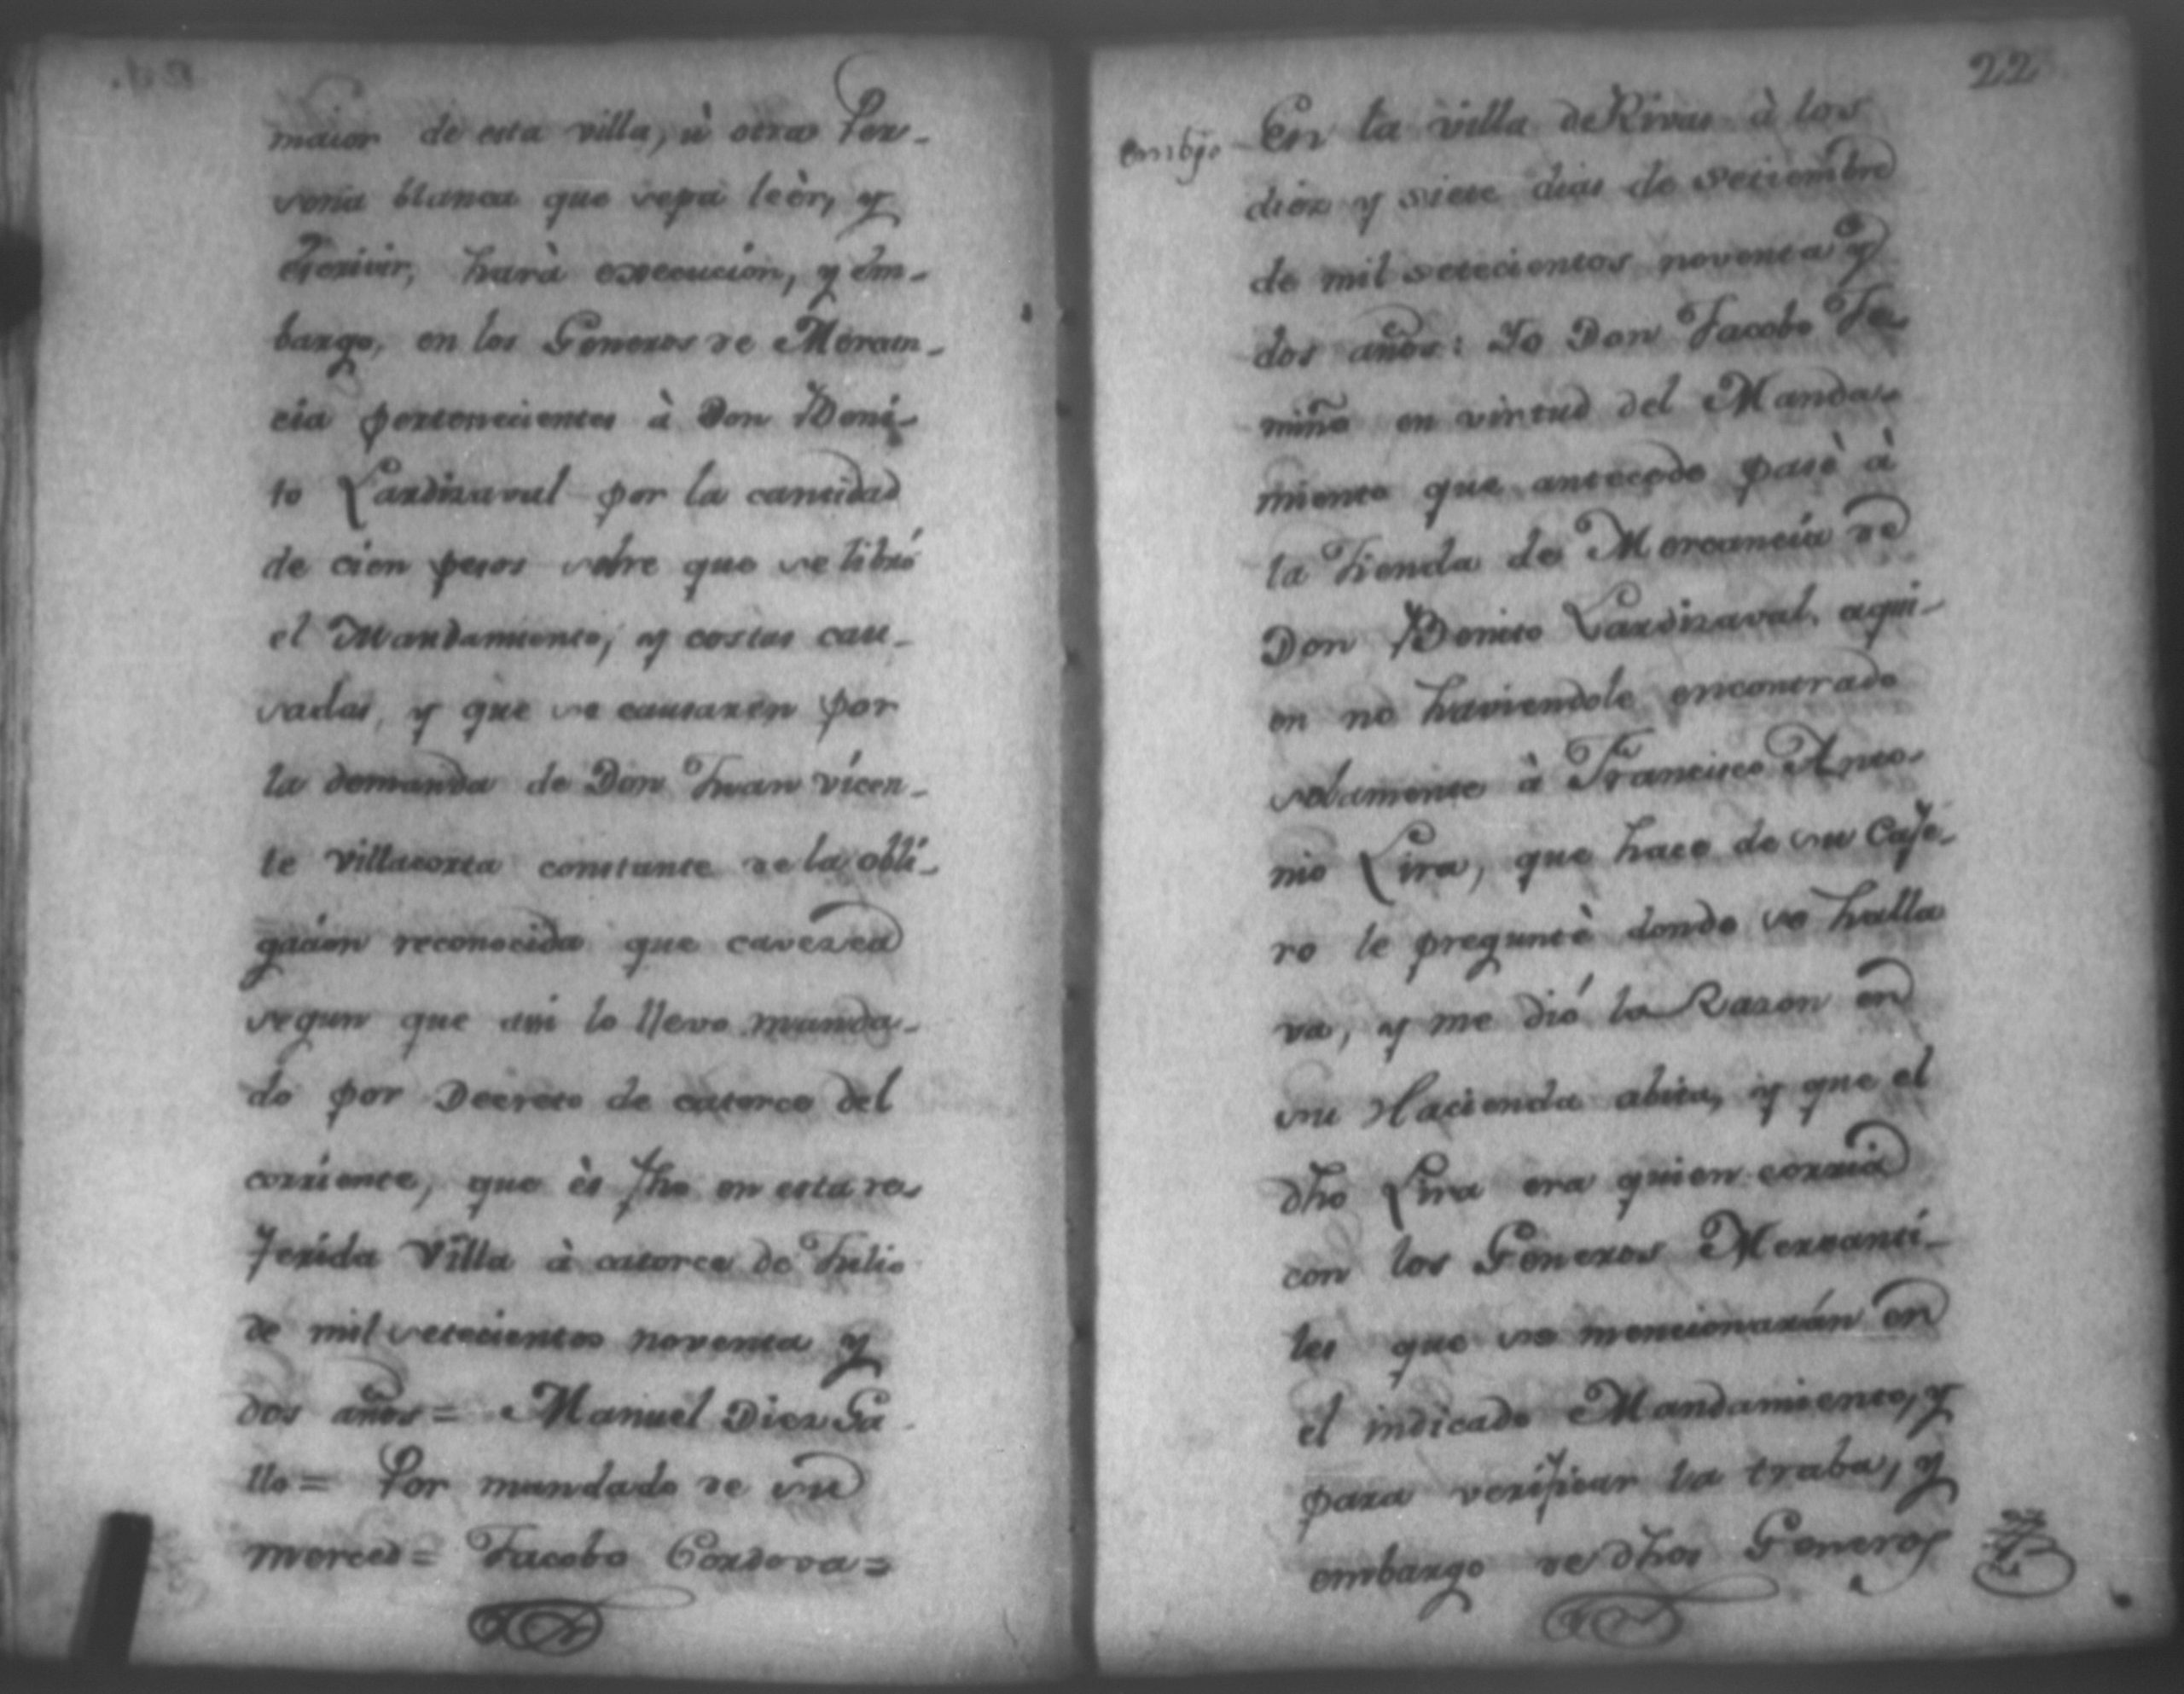 maior de esta villa, ù otra Per-
sona blanca que sepa leèr, y
Escrivir, harà execucion, y Em-
bargo, en los Generos de Mercan-
cia pertenecientes à Don Beni-
to Lardizaval por la cantidad
de cien pesos sobre que se libró
el Mandamiento, y costas cau-
sadas, y que se causaren por
la demanda de Don Juan vicen-
te villacorta constante de la obli-
gacion reconocida que caveza
segun que asi lo llevo manda-
do por Decreto de catorce del
corriente, que ès fho en esta re-
ferida Villa à catorce de Julio
de mil setecientos noventa y
dos años = Manuel Diez Ga
llo = Por mandado de su
merced = Jacobo Cordova =
22
embgo
En la villa de Rivas à los
diez y siete dias de Setiembre
de mil setecientos noventa y
dos años: Yo Don Jacobo
en virtud del Manda-
miento que antecede pasè à
la Tienda de Mercancia de
Don Benito Lardizaval, aqui-
en no haviendole encontrado
solamente à Francisco Anto-
nio Lira, que hace de su Caje-
ro le preguntè donde se halla
va, y me dió la Razon en
su Hacienda abita, y que el
dho Lira era quien corria
con los Generos Mercanti-
les que se mencionarán en
el indicado Mandamiento, y
para verificar la traba, y
embargo de dhos Generos